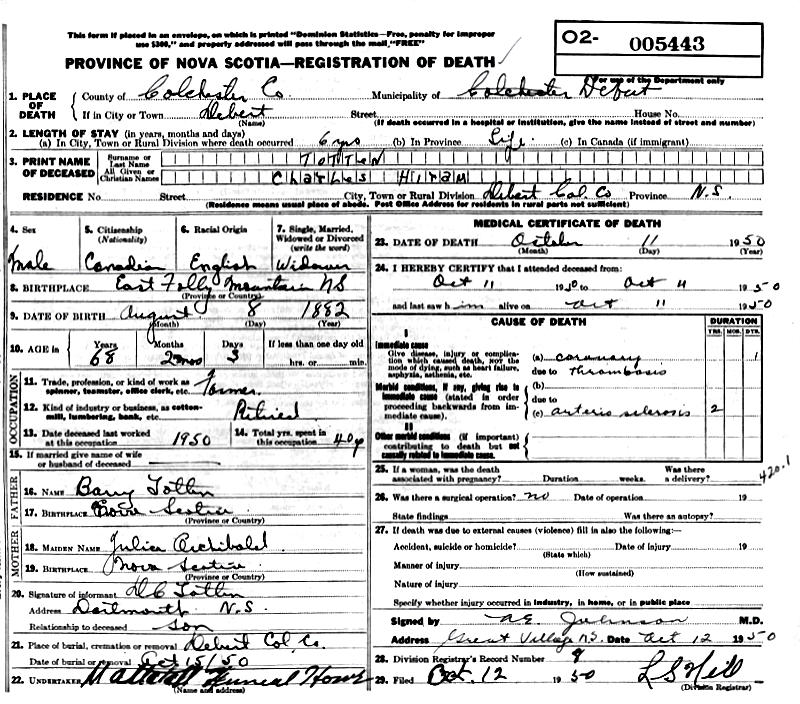 This form if placed in an envelope, on which is printed "Dominion Statistics—Free, penalty for improper
use $300," and properly addressed will pass through the mail, "FREE"
O2- 005443
For use of the Department only
PROVINCE OF NOVA SCOTIA—REGISTRATION OF DEATH
1. PLACE OF DEATH County of Colchester Co Municipality of Colchester Debert
If in City or Town Debert (Name) Street House No.
(If death occurred in a hospital or institution, give the name instead of street and number)
2. LENGTH OF STAY (in years, months and days)
(a) In City, Town or Rural Division where death occurred 6 yrs (b) In Province Life (c) In Canada (if immigrant)
3. PRINT NAME OF DECEASED Surname or Last Name TOTTEN
All Given or Christian Names Charles Hiram
RESIDENCE No. Street City, Town or Rural Division Debert Col. Co Province N.S.
(Residence means usual place of abode. Post Office Address for residents in rural parts not sufficient)
4. Sex Male
5. Citizenship (Nationality) Canadian
6. Racial Origin English
7. Single, Married, Widowed or Divorced (write the word) Widower
8. BIRTHPLACE East Folly Mountain NS
(Province or Country)
9. DATE OF BIRTH August 8 1882
(Month) (Day) (Year)
10. AGE in Years 68 Months 2 mos Days 3 If less than one day old hrs. or min.
OCCUPATION
11. Trade, profession, or kind of work as spinner, teamster, office clerk, etc. Farmer
12. Kind of industry or business, as cotton-mill, lumbering, bank, etc. Retired
13. Date deceased last worked at this occupation 1950
14. Total yrs. spent in this occupation 40 y
15. If married give name of wife or husband of deceased
FATHER
16. NAME Barry Totten
17. BIRTHPLACE Nova Scotia
(Province or Country)
MOTHER
18. MAIDEN NAME Julia Archibald
19. BIRTHPLACE Nova Scotia
(Province or Country)
20. Signature of informant Totten
Address Dartmouth N.S.
Relationship to deceased Son
21. Place of burial, cremation or removal Debert Col. Co.
Date of burial or removal Oct 15/50
22. UNDERTAKER Mattatall Funeral Home
(Name and address)
MEDICAL CERTIFICATE OF DEATH
23. DATE OF DEATH October 11 1950
(Month) (Day) (Year)
24. I HEREBY CERTIFY that I attended deceased from:
Oct 11 1950 to Oct 11 1950
and last saw him alive on Oct 11 1950
CAUSE OF DEATH DURATION
YRS. MOS. DYS.
I
Immediate cause
Give disease, injury or complication which caused death, NOT the mode of dying, such as heart failure, asphyxia, asthenia, etc.
(a) coronary 1
due to thrombosis
Morbid conditions, if any, giving rise to immediate cause (stated in order proceeding backwards from immediate cause).
(b)
due to
(c) arterio sclerosis 2
II
Other morbid conditions (if important) contributing to death but not causally related to immediate cause.
420.1
25. If a woman, was the death associated with pregnancy? Duration weeks. Was there a delivery?
26. Was there a surgical operation? no Date of operation 19
State findings Was there an autopsy?
27. If death was due to external causes (violence) fill in also the following:—
Accident, suicide or homicide? Date of injury 19
(State which)
Manner of injury
(How sustained)
Nature of injury
Specify whether injury occurred in industry, in home, or in public place
Signed by Johnson M.D.
Address Great Village N.S. Date Oct 12 1950
28. Division Registry's Record Number 9
29. Filed Oct. 12 1950 L S Hill
(Division Registrar)